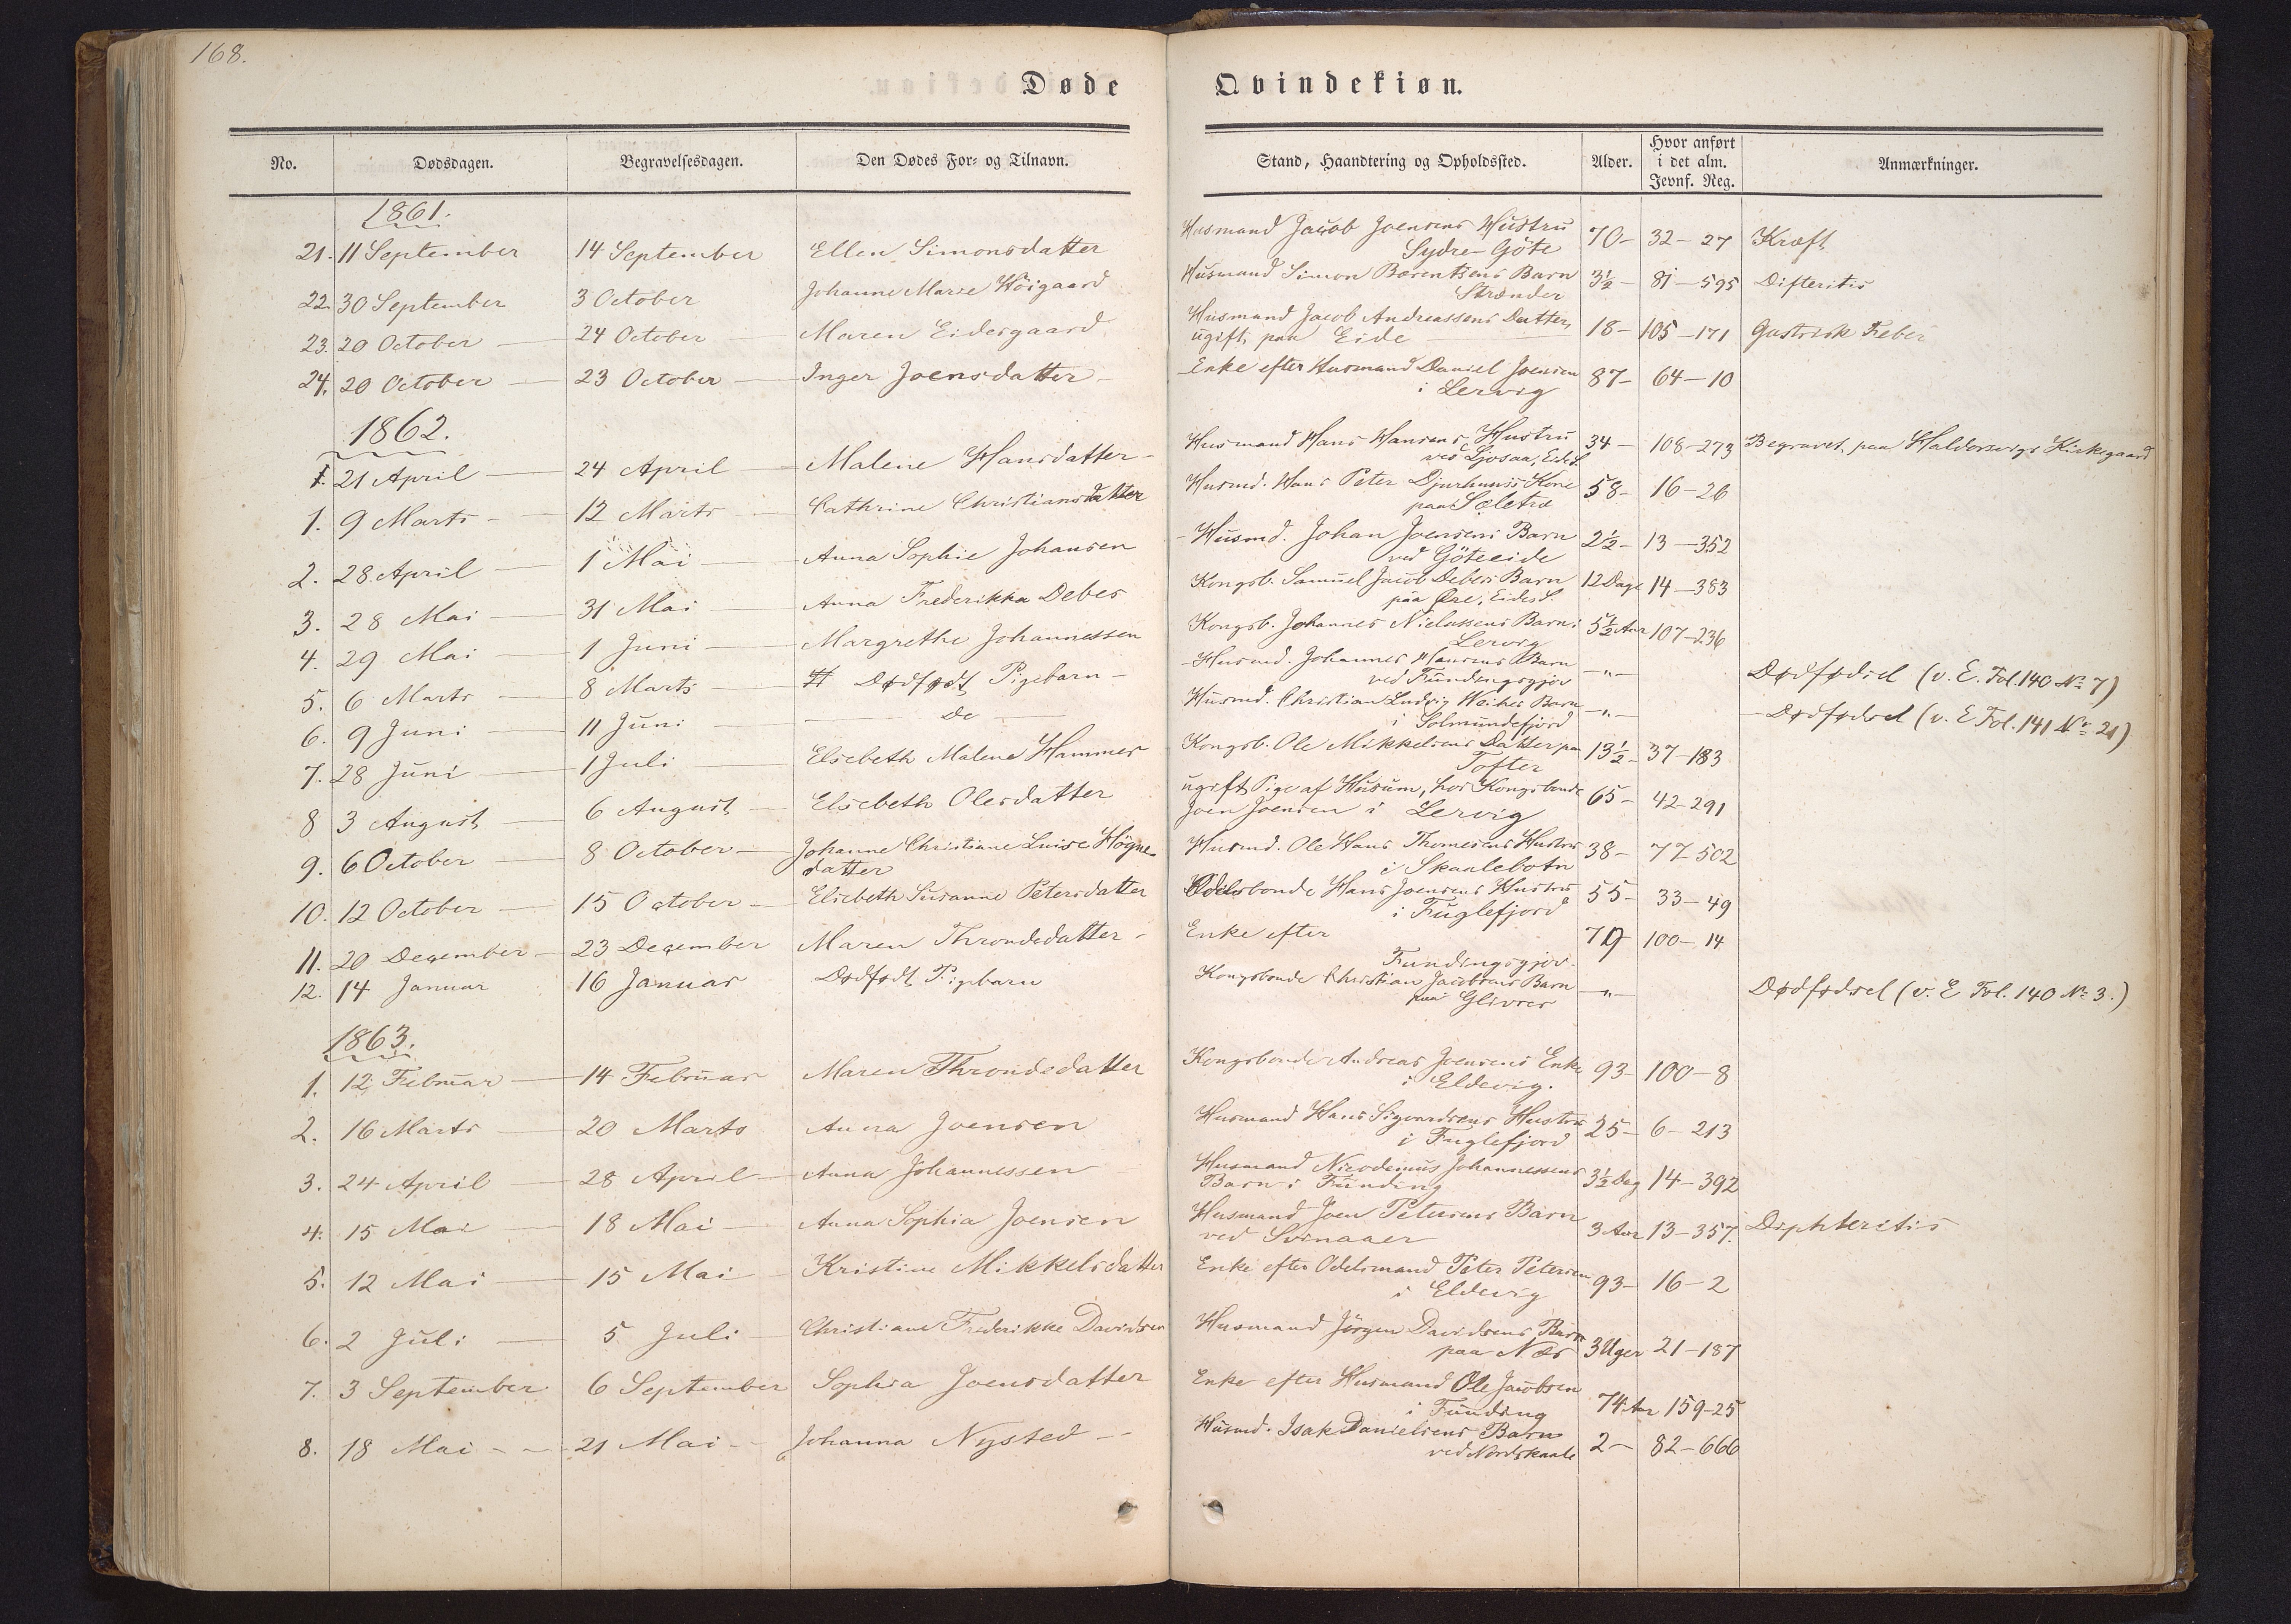 168.
Døde Qvindekiøn.
No. Dødsdagen. Begravelsesdagen. Den Dødes For- og Tilnavn. Stand, Haandtering og Opholdssted. Alder. Hvor anført i det alm. Jevnf. Reg. Anmærkninger.
1861.
21. 11 September 14 September Ellen Simonsdatter Husmand Jacob Joensens Hustru 70- 32-27 Kræft
Sydre-Göte
22. 30 September 3 October Johanne Marie Höigaard Husmand Simon Barentsens Barn 3½- 81-595 Difteritis
Strænder
23. 20 October 24 October Maren Eidesgaard Husmand Jacob Andreassens Datter, 18- 105-171 Gastrisk Feber
ugift, paa Eide
24. 20 October 23 October Inger Joensdatter Enke efter Husmand Daniel Joensen 87- 64-10
i Lervig
1862.
1. 21 April 24 April Malene Hansdatter Husmand Hans Hansens Hustru 34- 108-273 Begravet paa Haldorsvigs Kirkegaard
ved Ljosaa, Eide S.
1. 9 Marts 12 Marts Cathrine Christiansdatter Husmd. Hans Peter Djurhuus's Kone 58- 16-26
paa Sæletræ
2. 28 April 1 Mai Anna Sophie Johansen Husmd. Johan Joensens Barn 2½- 13-352
ved Göteeide
3. 28 Mai 31 Mai Anna Frederikka Debes Kongsb. Samuel Jacob Debes's Barn 12 Dage 14-383
paa Øre, Eides S.
4. 29 Mai 1 Juni Margrethe Johannessen Kongsb. Johannes Nielassens Barn i 5½ Aar 107-236
Lervig
5. 6 Marts 8 Marts Et Dødfødt Pigebarn Husmd. Johannes Hansens Barn -"- Dødfødsel (v. E. Fol. 140 No 7)
ved Fundingsgjov
6. 9 Juni 11 Juni Do Husmd. Christian Ludvig Weihes Barn -"- Dødfødsel (v. E Fol. 141 No 21)
i Solmundefjord
7. 28 Juni 1 Juli Elsebeth Malene Hammer Kongsb. Ole Mikkelsens Datter paa 13½- 37-183
Tofter
8 3 August 6 August Elsebeth Olesdatter ugift Pige af Husum, hos Kongsbonde 65- 42-291
Joen Joensen i Lervig
9. 6 October 8 October Johanne Christiane Luise Högne- Husmd. Ole Hans Thomesens Hustru 38- 77-502
datter i Skaalebotn
10. 12 October 15 October Elsebeth Susanne Petersdatter Odelsbonde Hans Joensens Hustru 55- 33-49
i Fuglefjord
11. 20 December 23 December Maren Throndsdatter Enke efter 79 100-14
Fundingsgjov.
12. 14 Januar 16 Januar Dødfødt Pigebarn Kongsbonde Christian Jacobsens Barn -"- Dødfødsel (v. E Fol. 140 No 3.)
paa Glivrer
1863.
1. 12 Februar 14 Februar Maren Throndsdatter Kongsbonde Andreas Joensens Enke 93- 100-8
i Eldevig.
2. 16 Marts 20 Marts Anna Joensen Husmand Hans Sigvardsens Hustru 25- 6-213
i Fuglefjord
3. 24 April 28 April Anna Johannessen Husmand Nicodemus Johannessens 3½ Dag 14-392
Barn i Funding
4. 15 Mai 18 Mai Anna Sophia Joensen Husmand Joen Petersens Barn 3 Aar 13-357. Diphteritis
ved Svinaaer
5. 12 Mai 15 Mai Kristine Mikkelsdatter Enke efter Odelsmand Peter Petersen 93- 16-2
i Eldevig
6. 2 Juli 5 Juli Christiane Frederikke Davidsen Husmand Jörgen Davidsens Barn 3 Uger 21-187
paa Næs
7. 3 September 6 September Sophia Joensdatter Enke efter Husmand Ole Jacobsen 74 Aar 159-25
i Funding
8. 18 Mai 21 Mai Johanna Nysted Husmd. Isak Danielsens Barn 2- 82-666
ved Nordskaale